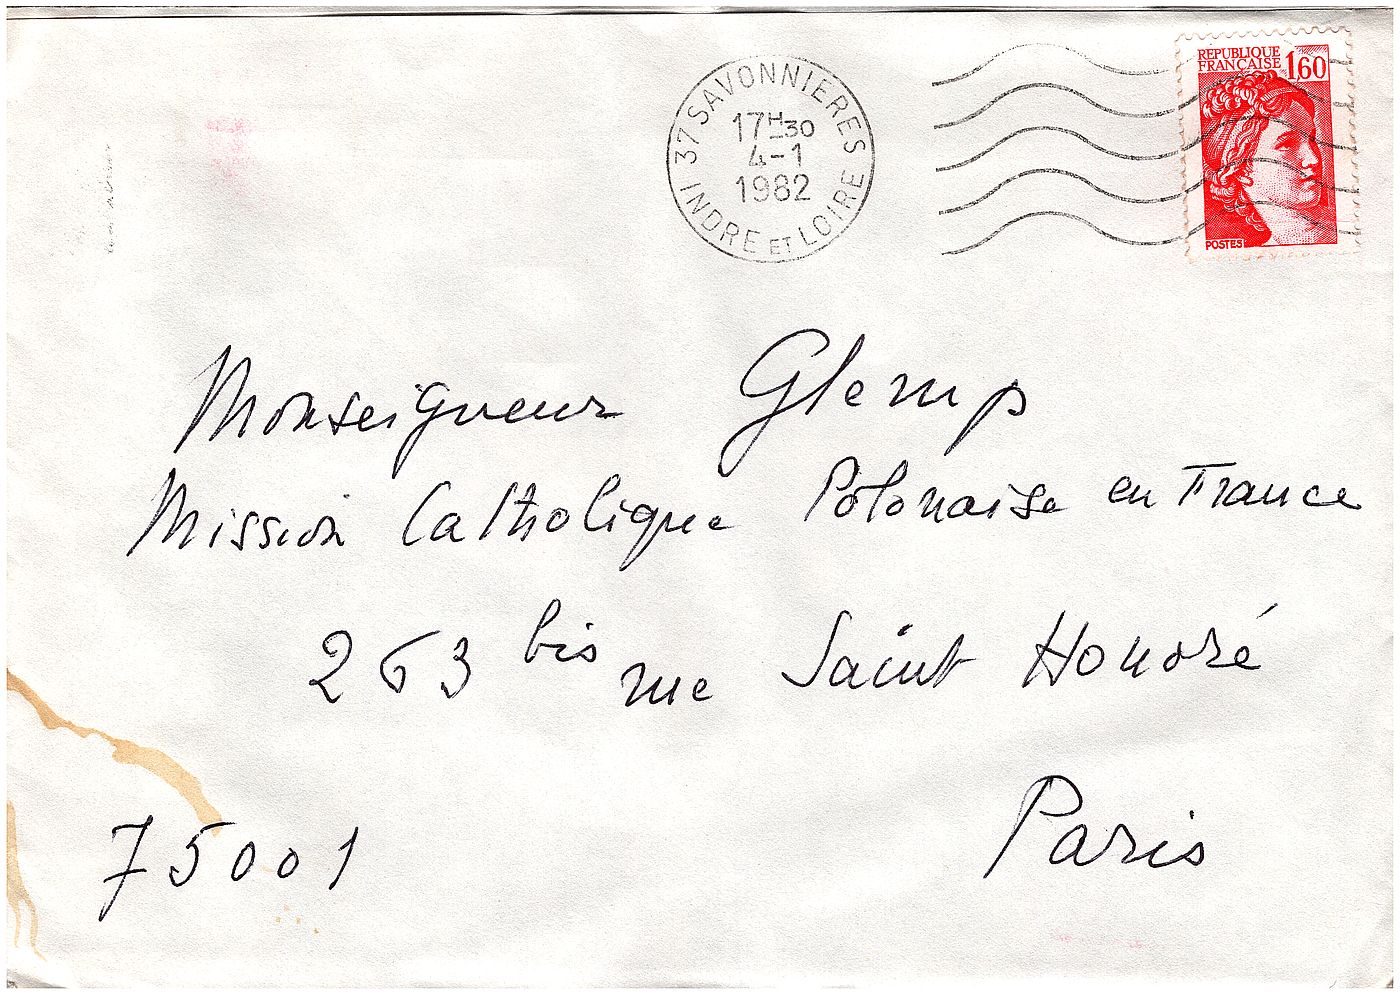 37 SAVONNIERES
17H30
4-1
1982
INDRE ET LOIRE
REPUBLIQUE
FRANÇAISE 1,60
POSTES
Monseigneur Glemp
Mission Catholique Polonaise en France
263 bis rue Saint Honoré
75001 Paris